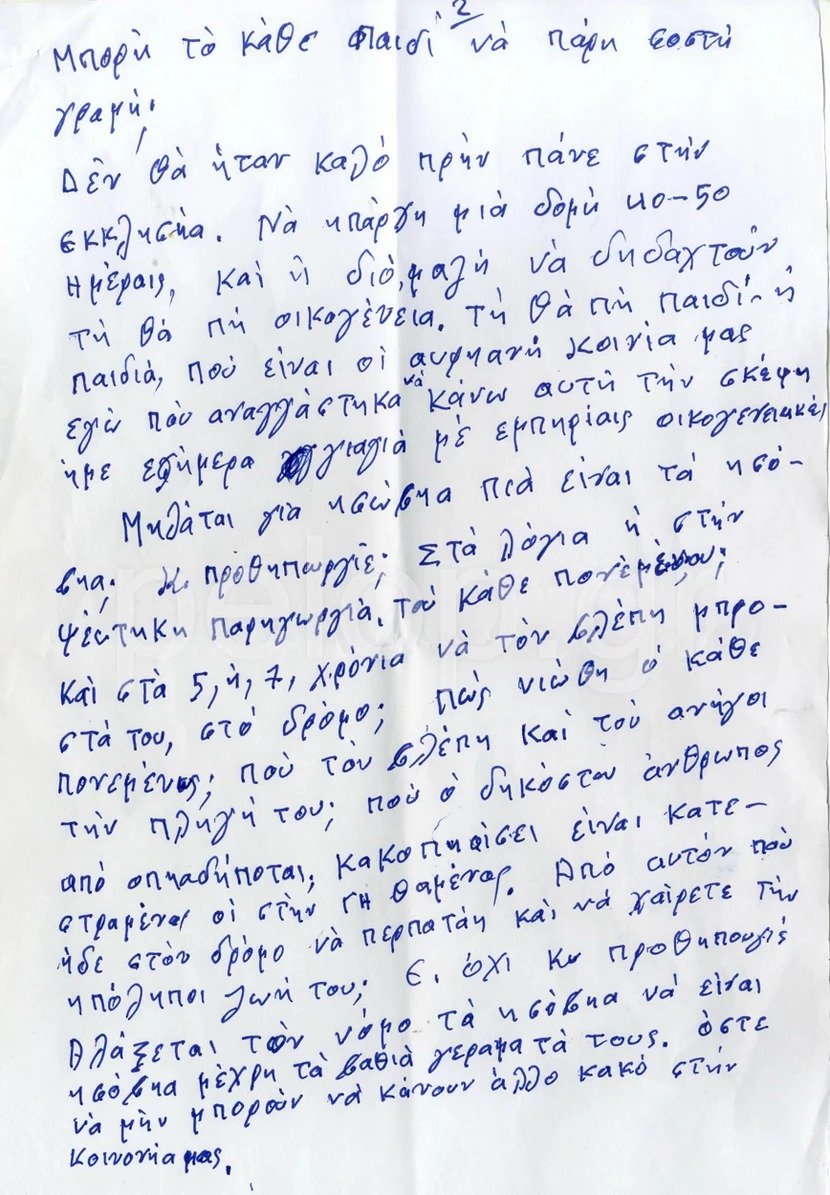 2
Μπορὴ τὸ κάθε παιδί νὰ πάρη σοστὴ
γραμὴ.
Δὲν θὰ ἠταν καλό πρὴν πάνε στὴν
εκκλησηα. Νὰ ηπάρχη μιὰ δομὴ 40-50
ημέραις, καὶ ἢ διὸ, μαζὴ νὰ δηδαχτοῦν
τὴ θὰ πὴ οικογένεια. Τὴ θὰ πὴ παιδί- ἢ
παιδιά, ποὺ εἶναι οἱ αυρηανὴ κοινία μας
εγὼ ποὺ αναγγάστηκα νὰ κάνω αυτὴ τὴν σκέψη
ἠμε σήμερα γιαγιά μὲ εμπηρίαις οικογενειακές
Μηλάται γιὰ ησώβηα πιὰ εἶναι τὰ ησό-
βηα; Κε προθηπωργὲ; Στὰ λόγια ἢ στὴν
ψέυτηκη παρηγωργιὰ, τοῦ κάθε πονεμένου;
Καὶ στὰ 5, ἢ, 7, χρόνια νὰ τὸν βλέπη μπρο-
στά του, στὸ δρόμο; πὼς νιώθη ὁ κάθε
πονεμένος; ποὺ τὸν βλέπη καὶ τοῦ ανήγοι
τὴν πληγή του; ποὺ ὁ δηκόστου ἄνθρωπος
από οπηαδήποται, κακοπηαίσει εἶναι κατε-
στραμένοι οἱ στὴν γῆ θαμένος. Από αυτόν ποὺ
ἠδε στὸν δρόμο νὰ περπατάη καὶ νὰ χαίρετε τὴν
ηπόληποι ζωή του; Ε. όχι Κε προθηπουργὲ
Αλάξεται τὸν νόμο τὰ ησόβηα νὰ εἶναι
ησόβηα μέχρη τὰ βαθιὰ γεραματά τους. ὁστε
νὰ μὴν μπορούν νὰ κάνουν ἄλλο κακό στὴν
κοινονηα μας.